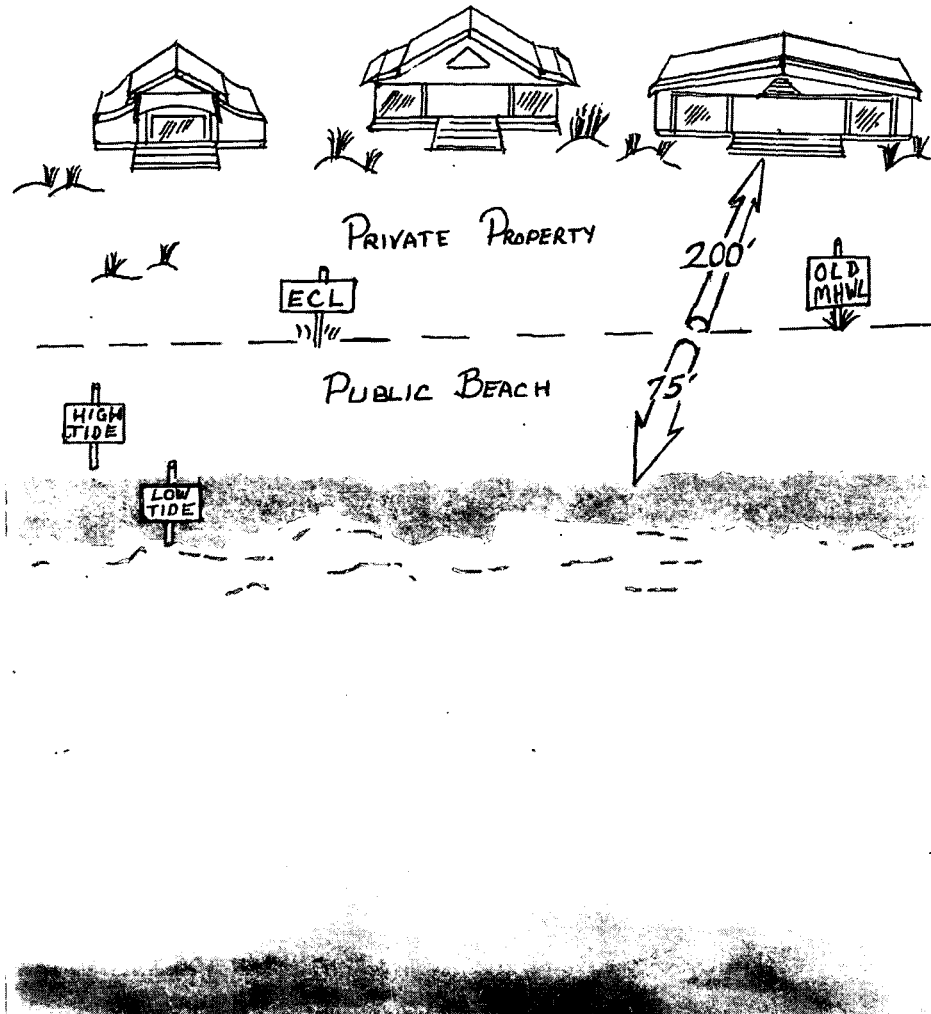 PRIVATE PROPERTY
200'
OLD
MHWL
ECL
PUBLIC BEACH
75'
HIGH
TIDE
LOW
TIDE